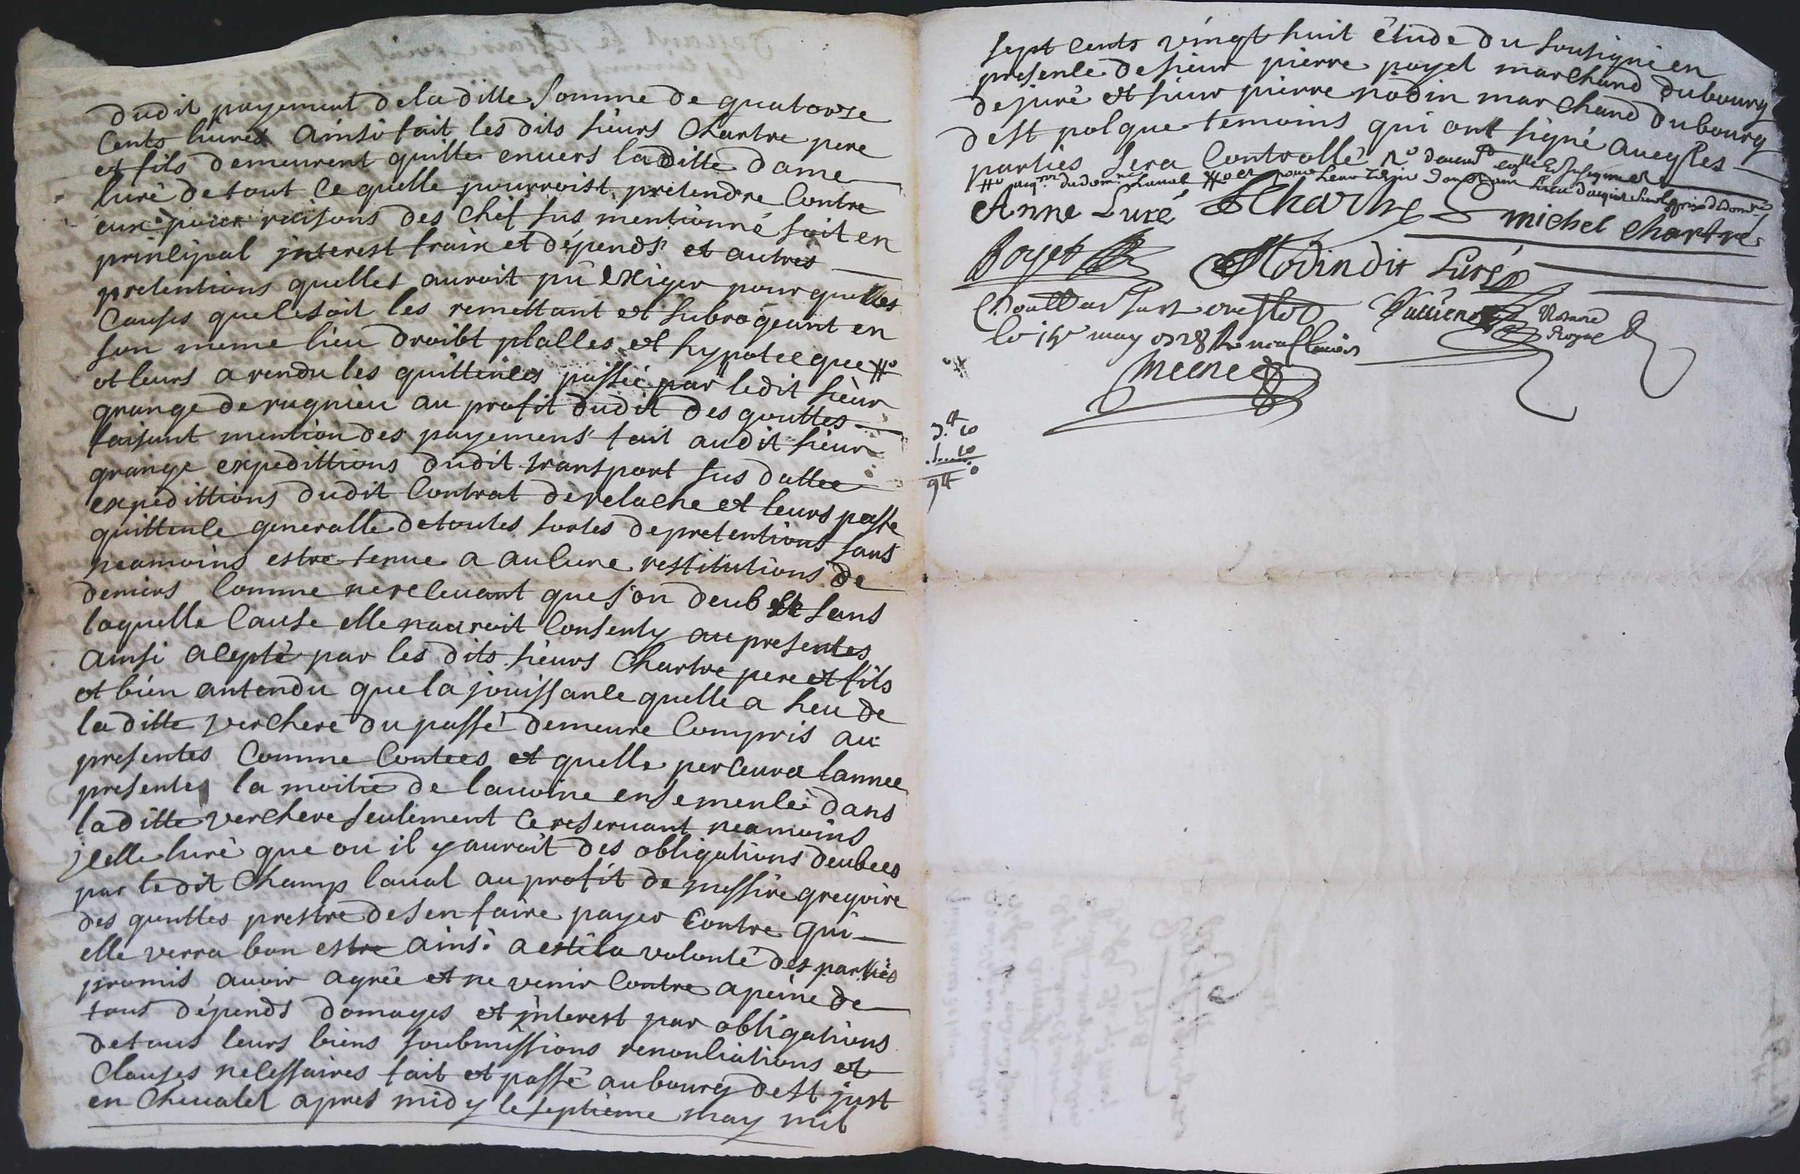 dudit payement de la ditte somme de quatorse
cents livres ainsi fait les dits sieurs Chartre pere
et fils demeurent quitte envers la ditte dame
luré de tout ce quelle pourroist pretendre contre
eux pour raisons des chef sus mentionné soit en
principal interest fraix et dépends et autres
pretentions quelles auroit pû exiger pour quelles
causes que ce soit les remettant et subrogeant en
son meme lieu droibt plasses et hypotecque
et leurs a rendu les quittences passée par ledit sieur
grange de rugnieu au profit dudit des gouttes
faisant mention des payemens fait audit sieur
grange expedittions dudit transport sus datteé
expedittions dudit contrat de relache et leurs passe
quittence generalle de toutes sortes de pretentions sans
neamoins estre tenue a aucune restitutions de
deniers comme ne recevant que son deub et sans
laquelle cause elle nauroit consenty au presentes
ainsi acepté par les dits sieurs Chartre pere et fils
et bien antendu que la jouissance quelle a heu de
la ditte verchere du passé demeure compris au
presentes comme contees et quelle percevra lannee
presentes la moitié de lavoine ensemencée dans
la ditte verchere seulement ce reservant neamoins
jcelle luré que ou il y auroit des obligations deubees
par ledit Champ laval au profit de messire gregoire
des gouttes prestre de sen faire payer contre qui
elle verra bon estre ainsi a esté la volonté des parties
promis avoir agrée et ne venir contre a peine de
tous dépends domages et interest par obligations
de tous leurs biens soubmissions renontiations et
clauses necessaires fait et passé au bourg de st just
en chevalet apres midy le septieme may mil
sept cents vingt huit étude du sousigné en
presence de sieur pierre poyet marchand du bourg
de juré et sieur pierre nodin marchand du bourg
de st polque temoins qui ont signé avec les
parties sera controllé
Anne Luré Chartre michel chartre
Poyet Nodin dit Luré
Notaire
Royal
le 15e may